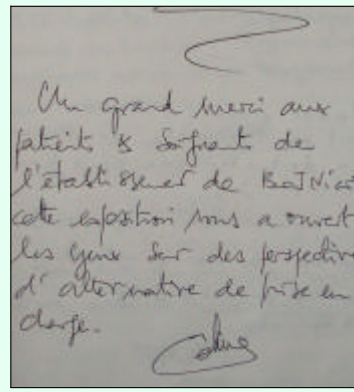 Un grand merci aux
patients & soignants de
l'établissement de
cette exposition nous a ouvert
les yeux sur des perspectives
d'alternative de prise en
charge.